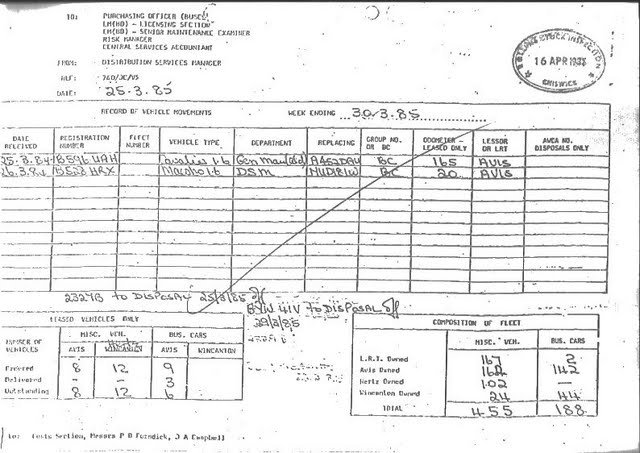 TO: PURCHASING OFFICER (BUSES)
LM(HO) - LICENSING SECTION
LM(BD) - SENIOR MAINTENANCE EXAMINER
RISK MANAGER
CENTRAL SERVICES ACCOUNTANT
FROM: DISTRIBUTION SERVICES MANAGER
REF:
DATE: 25.3.85
ROLLING STOCK INSPECTION
16 APR 1985
CHISWICK
RECORD OF VEHICLE MOVEMENTS WEEK ENDING 30.3.85
DATE RECEIVED REGISTRATION NUMBER FLEET NUMBER VEHICLE TYPE DEPARTMENT REPLACING GROUP NO. OR BC ODOMETER - LEASED ONLY LESSOR OR LRT AVCA NO. DISPOSALS ONLY
25.3.84 B596 UAH Cavalier 1.6 BC 165 AVIS
26.3.84 HRX DSM BC 20 AVIS
2327B TO DISPOSAL 25/3/85
41V TO DISPOSAL
29/3/85
LEASED VEHICLES ONLY
NUMBER OF VEHICLES MISC. VEH. BUS. CARS
AVIS WINCANTON AVIS WINCANTON
Ordered 8 12 9
Delivered - - 3
Outstanding 8 12 6
COMPOSITION OF FLEET
MISC. VEH. BUS. CARS
L.R.T. Owned 167 2
Avis Owned 162 142
Hertz Owned 102 -
Wincanton Owned 24 44
TOTAL 455 188
cc: Costs Section, Messrs P B J A Campbell